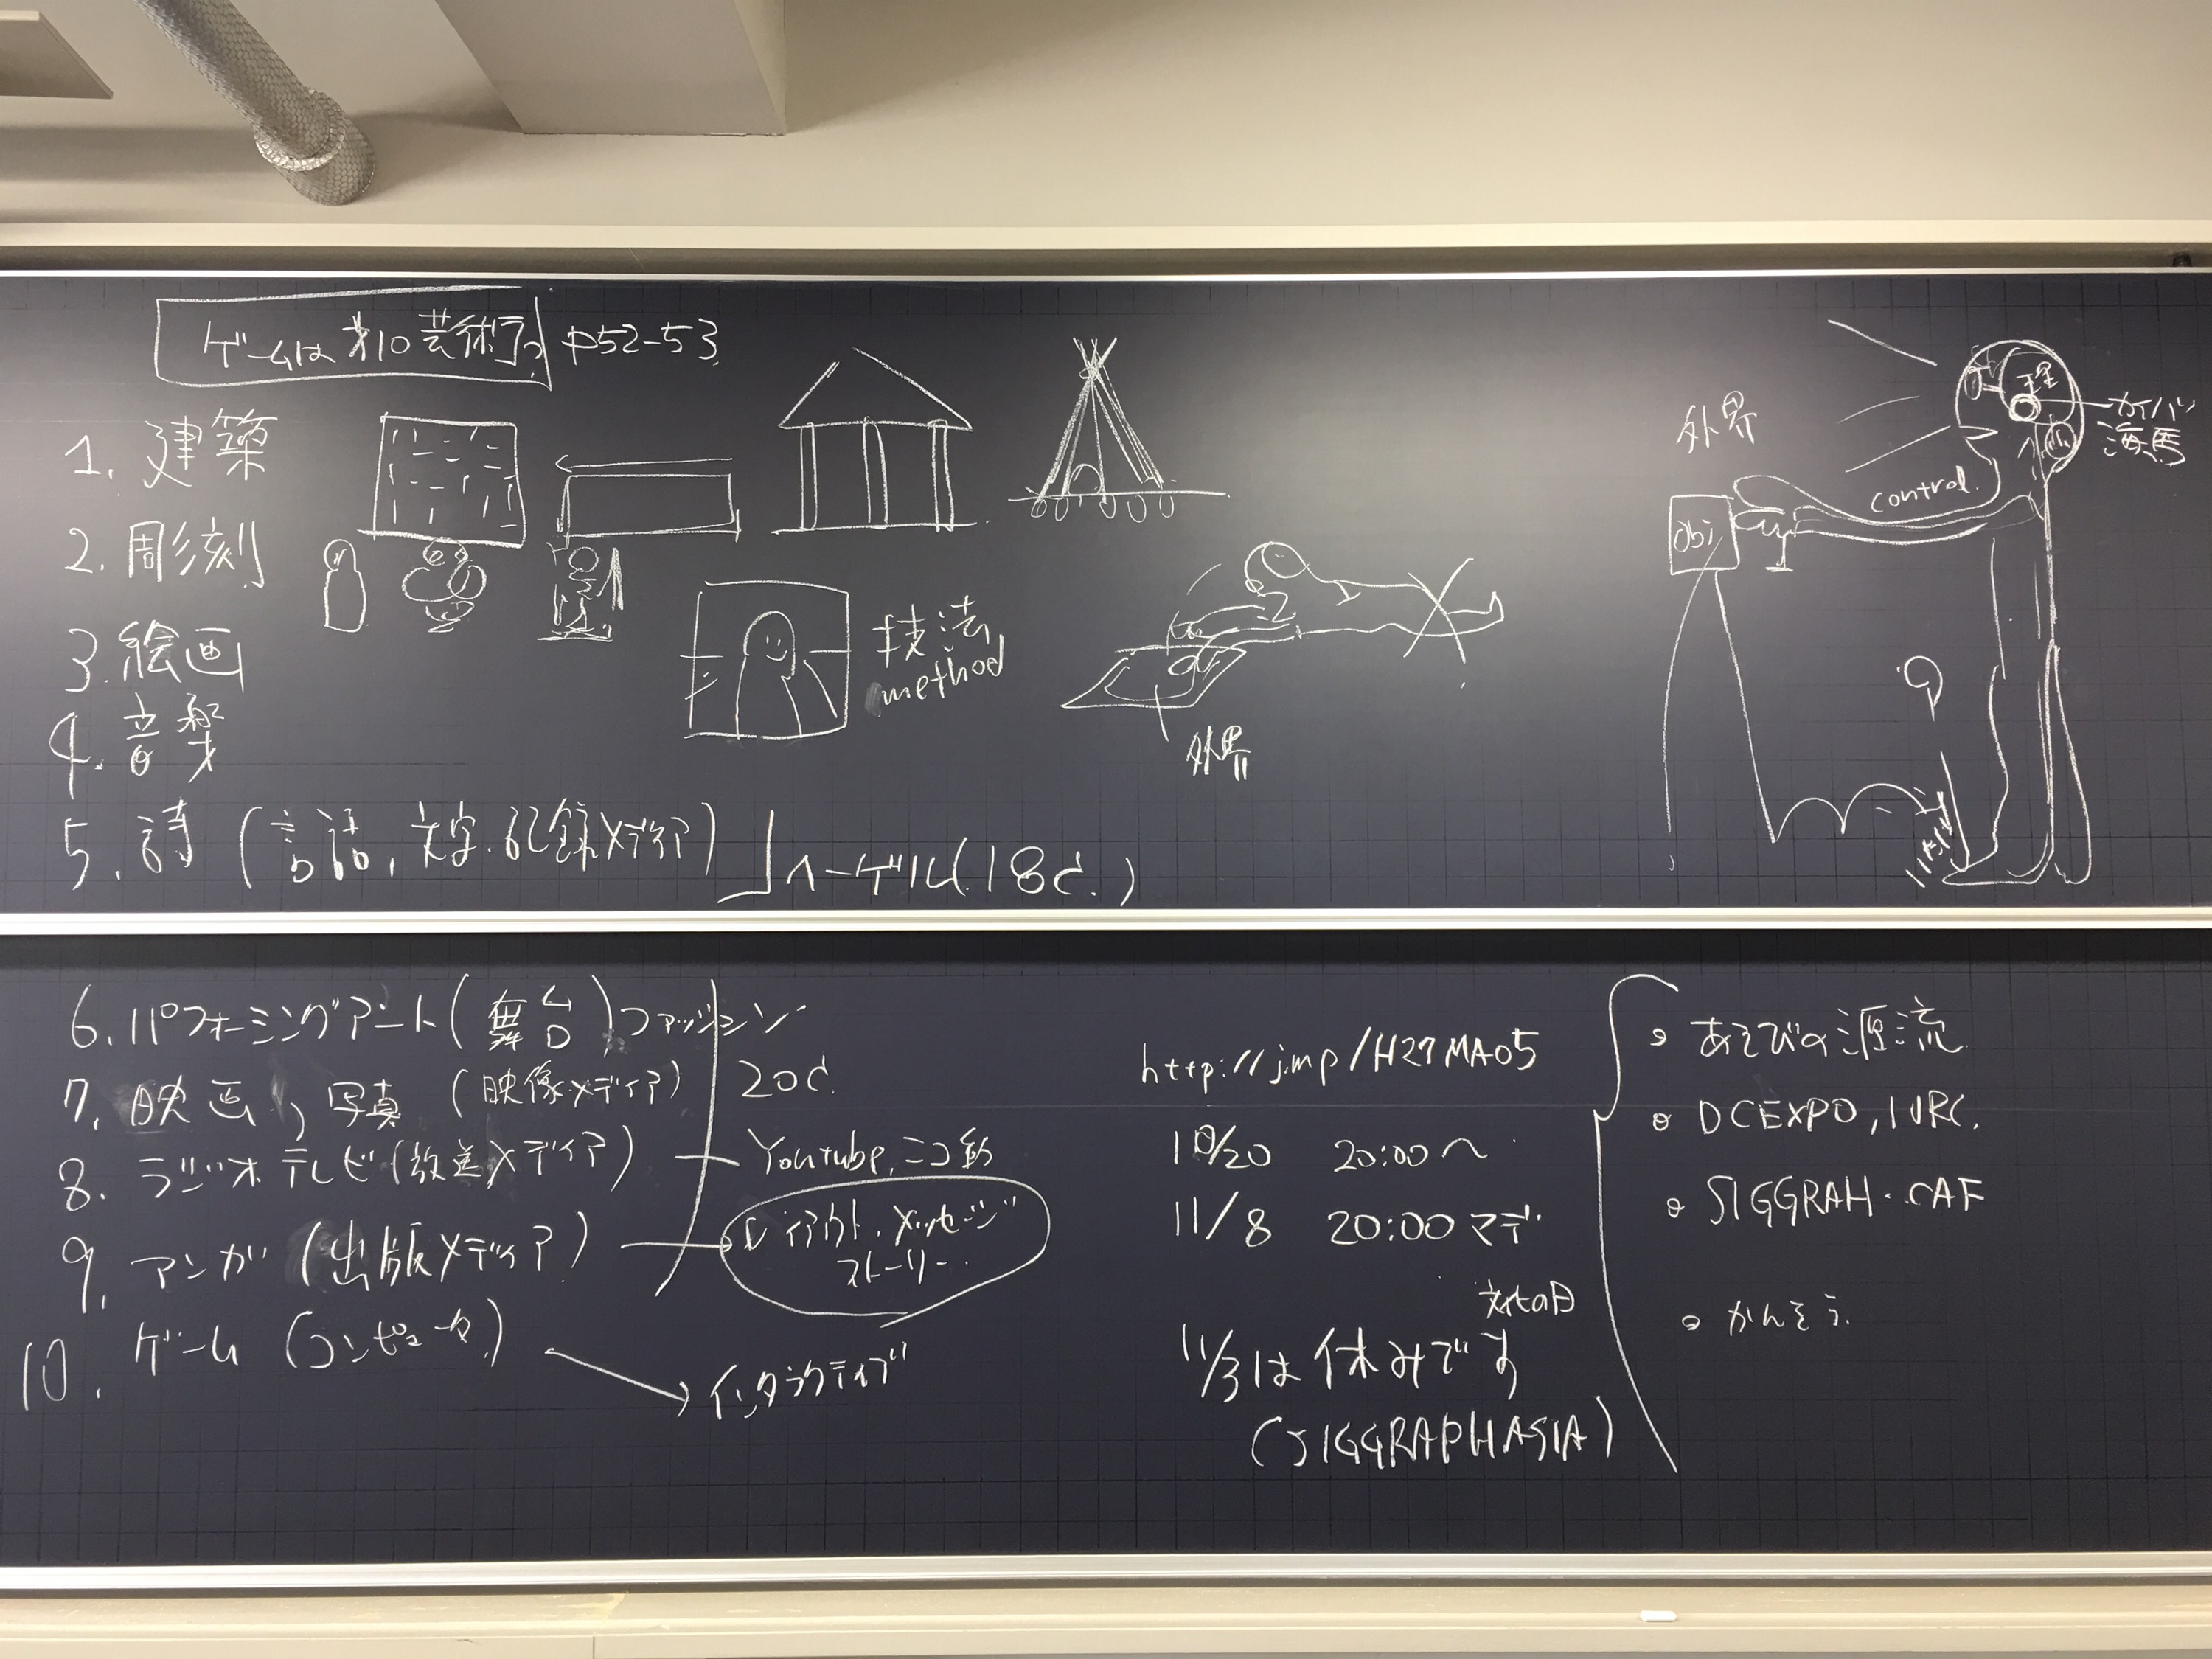 ゲームは第10芸術? p52-53
1. 建築
2. 彫刻
3. 絵画
4. 音楽
5. 詩 (言語, 文字. 記録メディア) ヘーゲル(18C.)
技法
method
外界
外界
control.
obj
理
カイバ
海馬
6. パフォーミングアート(舞台), ファッション
7. 映画, 写真 (映像メディア) 20C.
8. ラジオ テレビ(放送メディア) Youtube, ニコ動
9. マンガ (出版メディア) レイアウト. メッセージ
ストーリー.
10. ゲーム (コンピュータ) インタラクティブ
http://j.mp/H27MA05
10/20 20:00〜
11/8 20:00マデ
文化の日
11/3は休みです
(SIGGRAPHASIA)
あそびの源流
DCEXPO, IVRC.
SIGGRAH・CAF
かんそう.